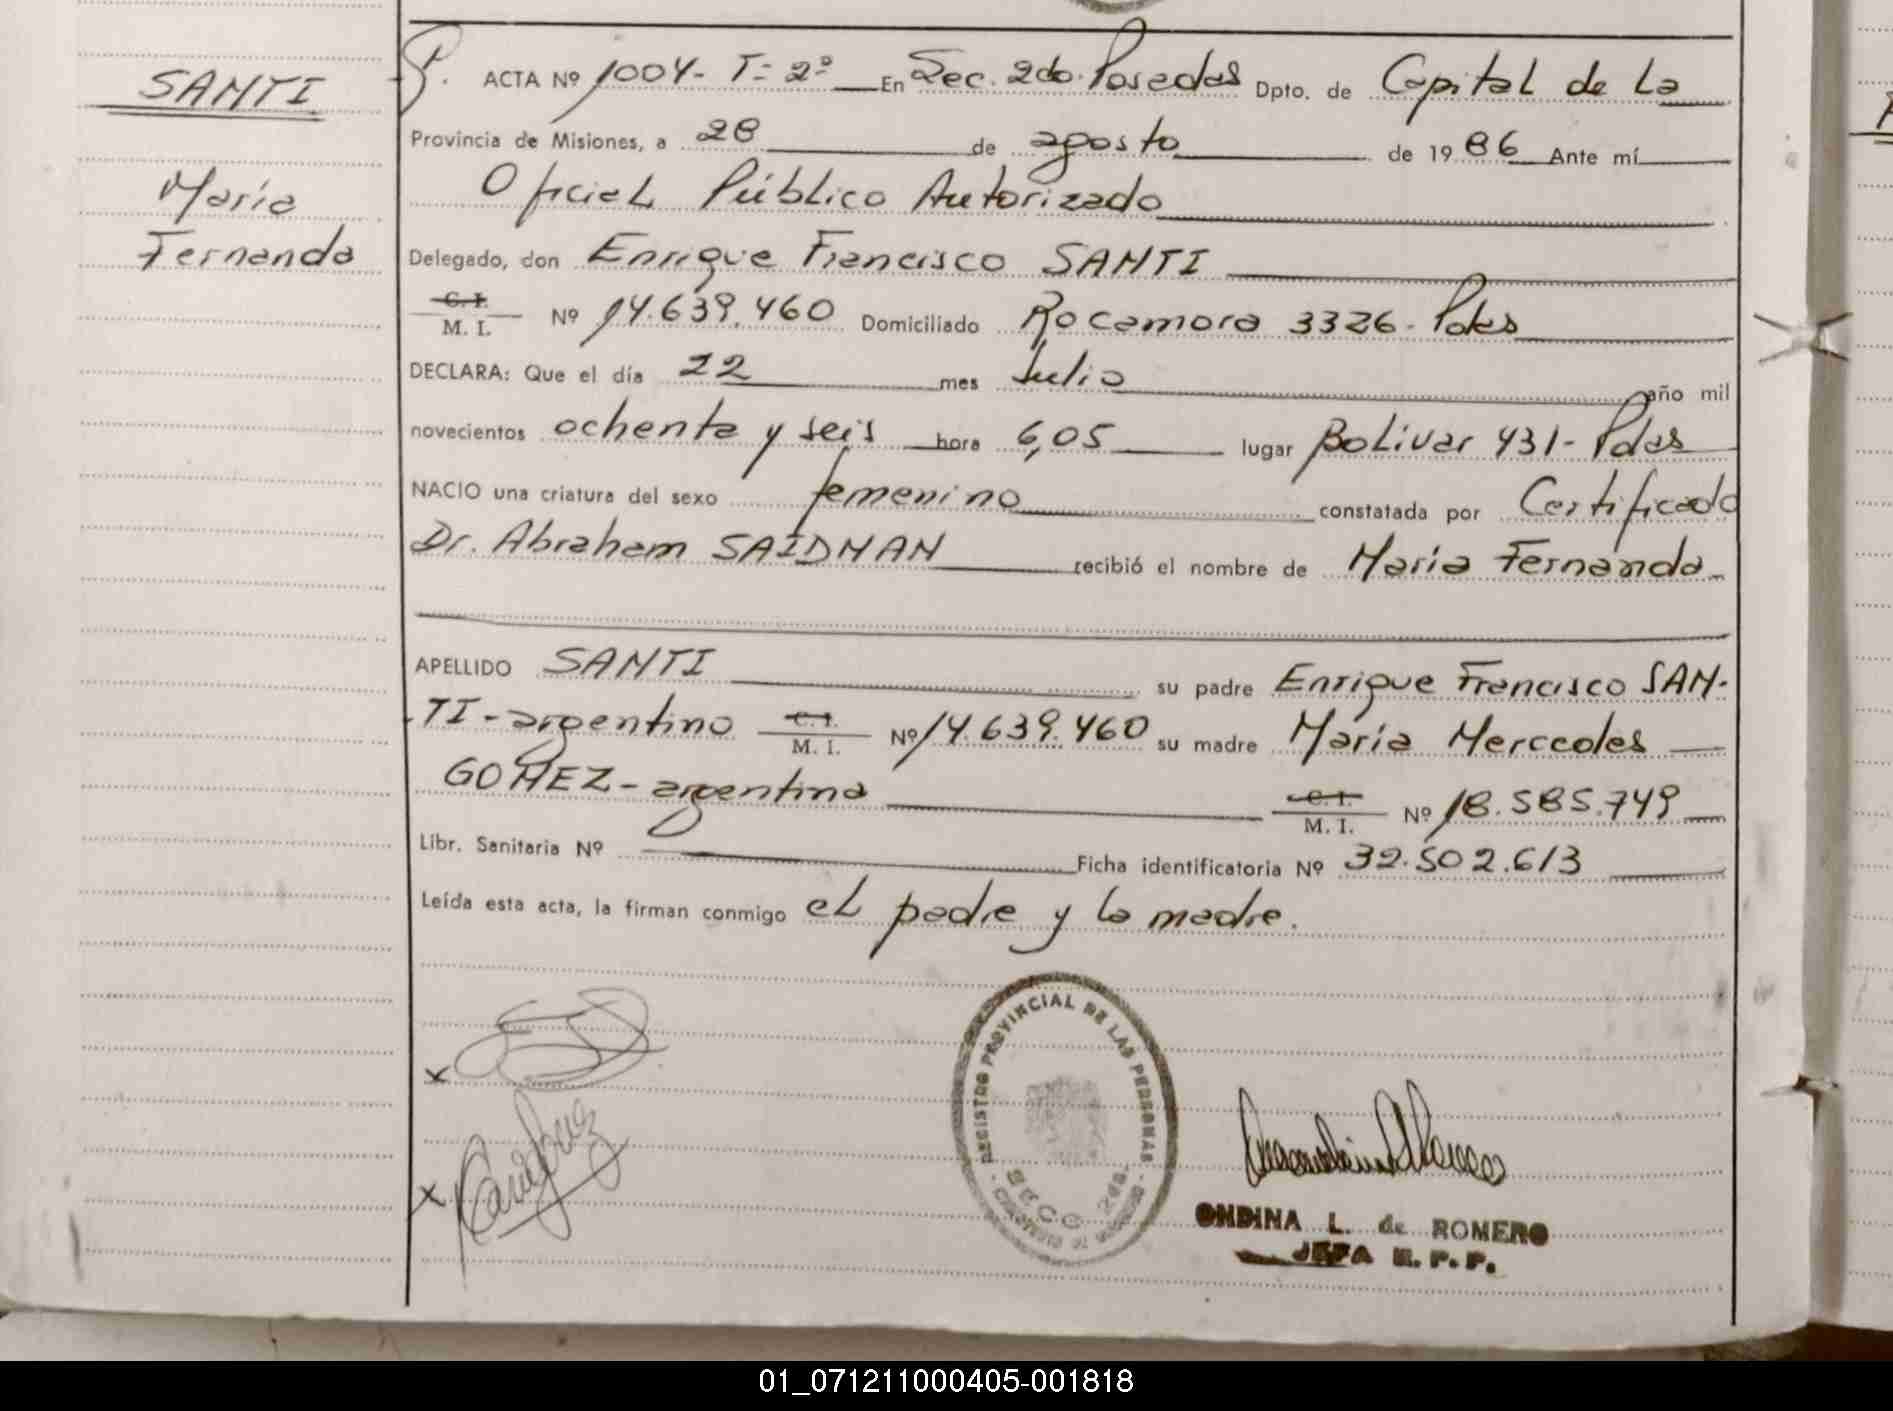 SANTI
María
Fernanda
ACTA Nº 1004- T= 2º En Sec. 2do. Posadas Dpto. de Capital de La
Provincia de Misiones, a 28 de agosto de 1986 Ante mí
Oficial Público Autorizado
Delegado, don Enrique Francisco SANTI
C. I.
M. I. Nº 14.639.460 Domiciliado Rocamora 3326- Pdas
DECLARA: Que el día 22 mes Julio año mil
novecientos ochenta y seis hora 6,05 lugar Bolivar 431- Pdas
NACIO una criatura del sexo femenino constatada por Certificado
Dr. Abraham SAIDMAN recibió el nombre de María Fernanda
APELLIDO SANTI su padre Enrique Francisco SAN-
TI - argentino C. I. M. I. Nº 14.639.460 su madre María Mercedes
GOMEZ - argentina C. I. M. I. Nº 18.585.749
Libr. Sanitaria Nº Ficha identificatoria Nº 32.502.613
Leída esta acta, la firman conmigo el padre y la madre.
x
x
REGISTRO PROVINCIAL DE LAS PERSONAS
SECC 2da
ONDINA L. de ROMERO
JEFA R. P. P.
01_071211000405-001818